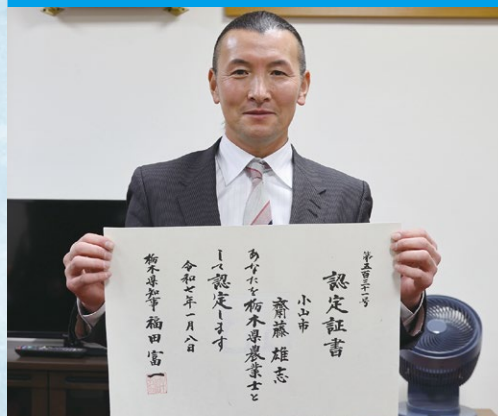 第五百三十一号
認定証書
小山市
齋藤雄志
あなたを栃木県農業士と
して認定します
令和七年一月八日
栃木県知事 福田富一